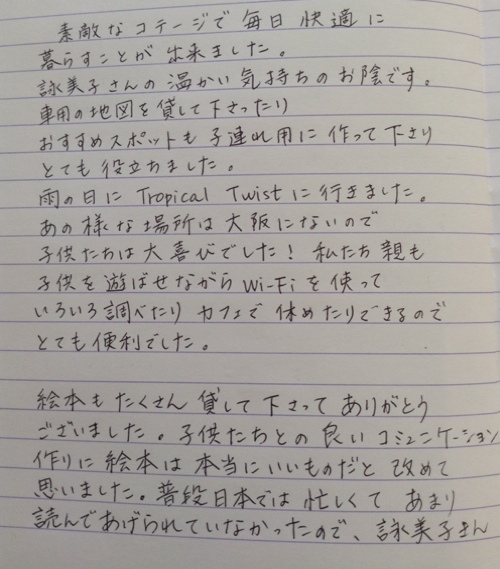 素敵なコテージで毎日快適に
暮らすことが出来ました。
詠美子さんの温かい気持ちのお陰です。
車用の地図を貸して下さったり
おすすめスポットも子連れ用に作って下さり
とても役立ちました。
雨の日に Tropical Twist に行きました。
あの様な場所は大阪にないので
子供たちは大喜びでした！私たち親も
子供を遊ばせながら Wi-Fi を使って
いろいろ調べたりカフェで休めたりできるので
とても便利でした。
絵本もたくさん貸して下さってありがとう
ございました。子供たちとの良いコミュニケーション
作りに絵本は本当にいいものだと改めて
思いました。普段日本では忙しくてあまり
読んであげられていなかったので、詠美子さん